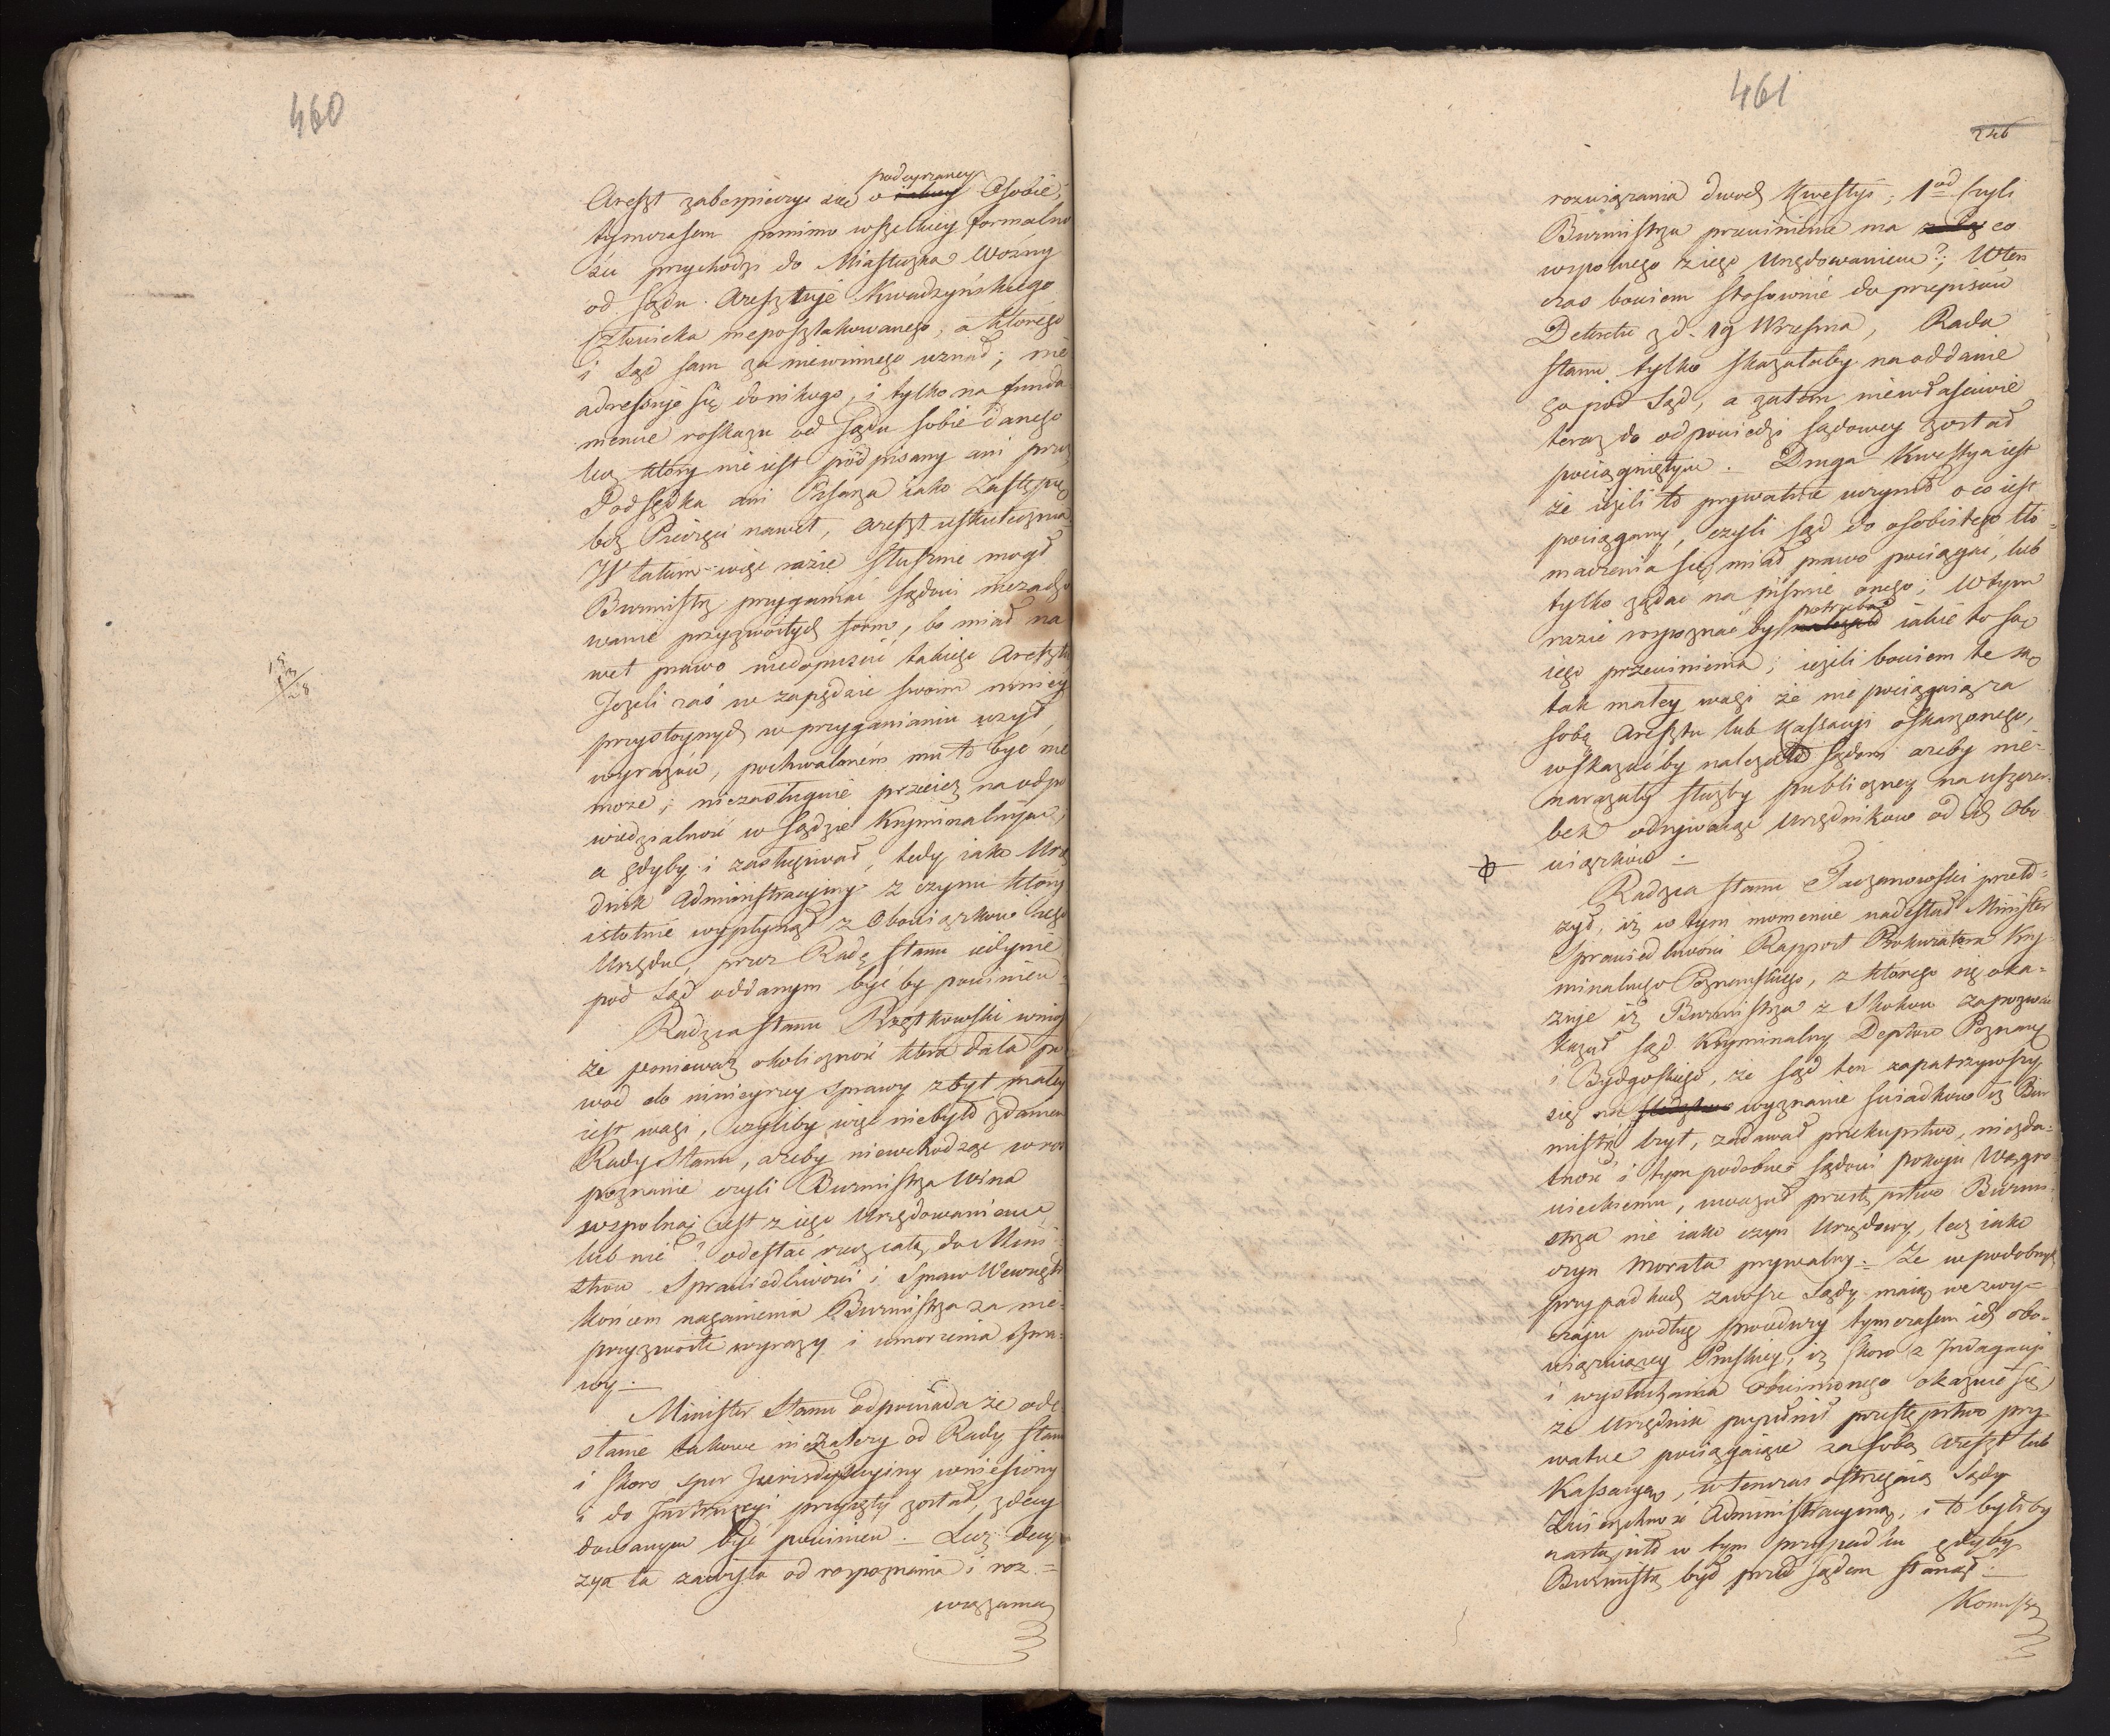 460
podeyrzaney
Areszt zabezpieczyć się o Osobie;
tymczasem pomimo wszelkiey formalno
ści przychodzi do Miasteczka Wozny
od Sądu. Aresztuje Kwadzyńskiego
Człowieka nieposzlakowanego, a którego
i Sąd sam za niewinnego uznał; nie
adresuje się do nikogo, i tylko na funda
mencie roskazu od Sądu sobie danego
lecz który nie iest podpisany ani przez
Podsędka ani Pisarza iako Zastępcę
bez Pieczęci nawet, areszt uskutecznia
W takim więc razie słusznie mogł
Burmistrz przyganiać Sądowi niezacho
wanie przyzwoitych form, bo miał na
wet prawo niedopuścić takiego Aresztu
Jeżeli zaś w zapędzie swoim mniey
przystoynych w przyganianiu użył
wyrazów, pochwalonem mu to być nie
może; niezasługuie przecież na odpo
wiedzialność w Sądzie Kryminalnym,
a gdyby i zasługiwał, tedy iako Urzę
dnik Administracyiny z czynu który
istotnie wypłynął z Obowiązków iego
Urzędu, przez Radę Stanu iedynie
pod Sąd oddanym być by powinien
Radzca Stanu Rzętkowski wniosł
że ponieważ okoliczność która dała po
wód do ninieyszey sprawy zbyt małey
iest wagi, czyliby więc niebyło zdaniem
Rady Stanu, ażeby niewchodząc w roz
poznanie czyli Burmistrza Wina
wspolną iest z iego Urzędowaniem
lub nie? odesłać rzecz całą do Mini
strów Sprawiedliwości i Spraw Wewnętr
końcem naganienia Burmistrza za nie
przyzwoite wyrazy i umorzenia spra
wy.—
Minister Stanu odpowiada że ode
słanie takowe niezależy od Rady Stanu
i skoro spor Jurisdykcyiny wniesiony
i do Instrukcyi przyięty został, zdecy
dowanym być powinien — Lecz decy
zya ta zawisła od rozpoznania i roz=
wiązania
461
246
rozwiązania dwoch Kwestyi; 1od czyli
Burmistrza przewinienie ma co
wspolnego z iego Urzędowaniem?; Wten
czas bowiem stosownie do przepisów
Dekretu z d. 19 Września, Rada
Stanu tylko skazałaby na oddanie
go pod Sąd, a zatem niewłaściwie
teraz do odpowiedzi sądowey został
pociągniętym. — Druga Kwestya iest
że ieżeli to prywatnie uczynił o co iest
pociągany, czyli Sąd do osobistego tło=
maczenia się miał prawo pociągać, lub
tylko żądać na piśmie onego; W tym
potrzeba
razie rozpoznać by iakie to są
iego przewinienia; ieżeli bowiem te są
tak małey wagi że nie pociągaią za
sobą Aresztu lub Kassacyi oskarżonego,
wskazać by należało Sądom ażeby nie=
narażały służby publiczney na uszczer=
bek odrywaiąc Urzędnikow od ich Obo
wiązków.—
Radzca Stanu Taczanowski przeło=
żył, iż w tym momencie nadesłał Minister
Sprawiedliwości Rapport Prokuratora Kry
minalnego Poznańskiego, z którego się oka=
zuje iż Burmistrza z Skokow zapozwać
kazał Sąd Kryminalny Deptow Poznań
i Bydgoskiego, że Sąd ten zapatrzywszy
się na wyznanie świadków iż Bur
mistrz lżył, zadawał przekupstwo, niezda=
tność i tym podobnie Sądowi pokoju Wągro
wieckiemu, uważał przestępstwo Burmi
strza nie iako czyn Urzędowy, lecz iako
czyn Morata prywatny.— Że w podobnych
przypadkach zawsze Sądy maią we zwy=
czaju podług procedury tymczasem ich obo=
wiązuiącey Pruskiey, iż skoro z Indagacyi
i wysłuchania obwinionego okazuie się
że Urzędnik popełnił przestępstwo pry
watne pociągaiące za sobą Areszt lub
Kassacyą, wtenczas ostrzegaią Sądy
Zwierzchność Administracyiną, i to byłoby
nastąpiło w tym przypadku gdyby
Burmistrz był przed Sądem stanął.—
Komissya